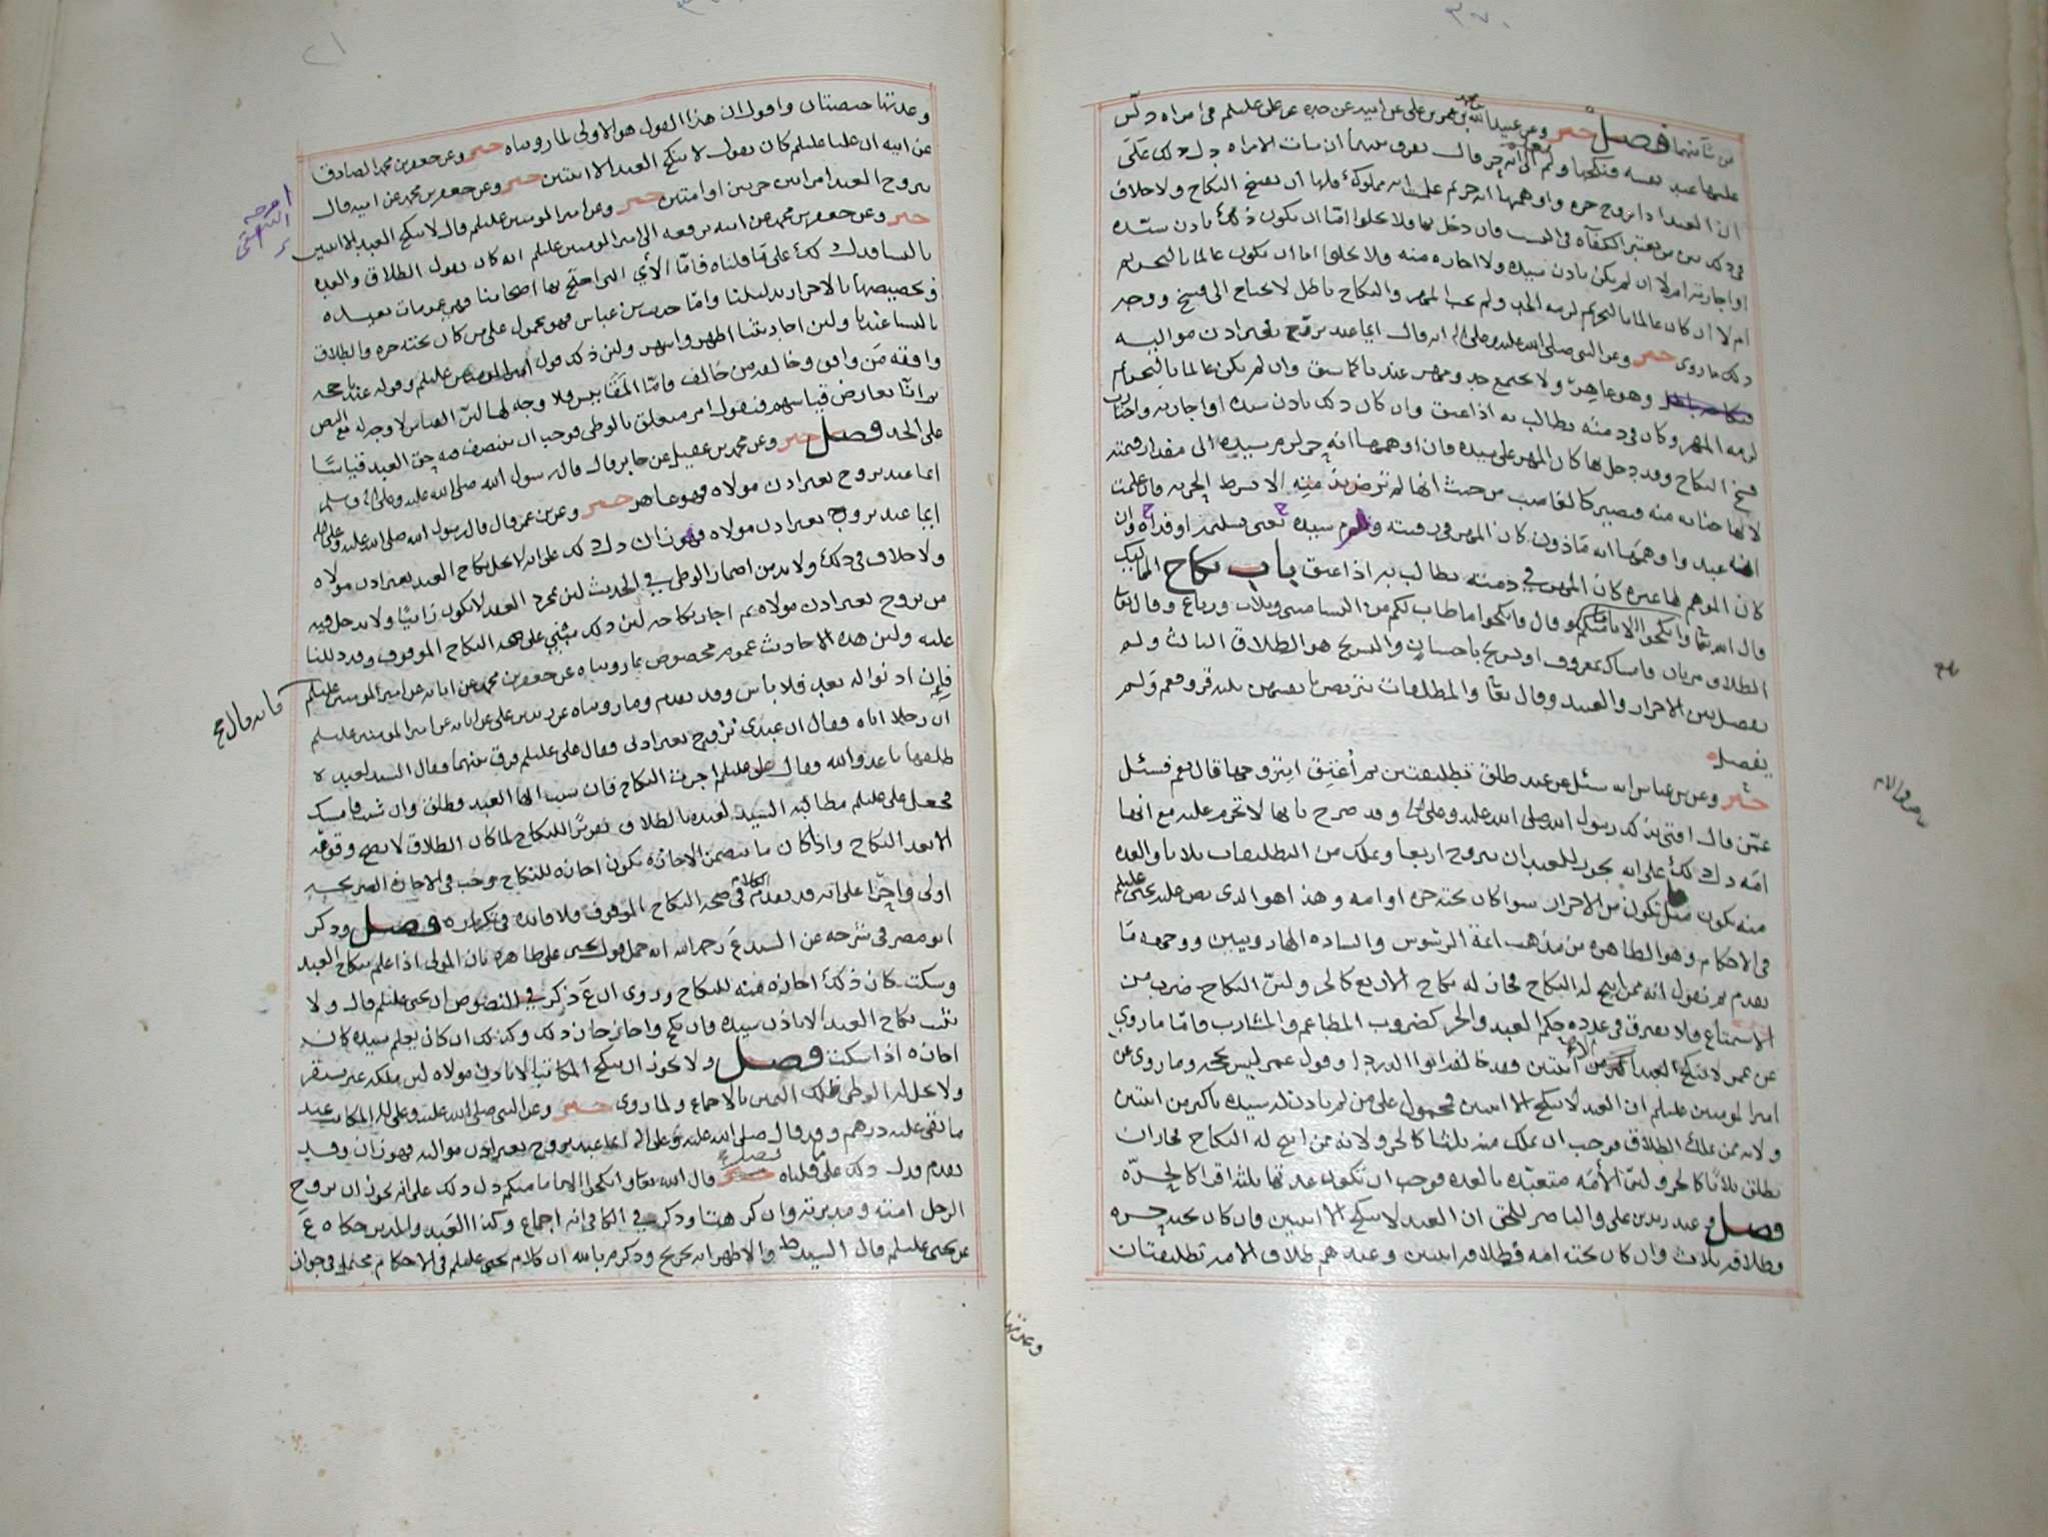 ٣٧٠
من شاتهما فصل خبر وعن عبيد الله بن محمد بن عمر بن علي عن ابيه عن جده عن علي عليلم في امراه دلّس
عليها عبد نفسه فنكحها ولم تعلم الا انه حر قال يفرق بينهما ان شات الامراه دل ذلك على
ان العبد اذا تزوج حره واوهمها انه حر ثم علمت انه مملوك فلها ان تفسخ النكاح ولا خلاف
في ذلك بين من يعتبر الكفآة في النسب فان دخل بها فلا يخلوا امّا ان يكون ذلك باذن سيّده
او اجازته ام لا ان لم يكن باذن سيده ولا اجازه منه ولا يخلوا اما ان يكون عالما بالتحريم
ام لا ان كان عالما بالتحريم لزمه الحد ولم يجب المهر والنكاح باطل لا يحتاج الى فسخ ووجه
ذلك ما روى خبر وعن النبي صلى الله عليه وعلى اله انه قال ايما عبد تزوج بغير اذن مواليه
فنكاحه باطل وهو عاهر ولا يجتمع حد ومهر عندنا كما سبق وان لم يكن عالما بالتحريم
لزمه المهر وكان في ذمته يطالب به اذا عتق وان كان ذلك باذن سيده او اجازته واختارت
فسخ النكاح وقد دخل بها كان المهر على سيده فان اوهمها انه حر لزم سيده الى مقدار قيمته
لانها جنايه منه فيصير كالغاصب من حيث انها لم ترض منه الا بشرط الحريه فان علمت
انه عبد واوهمها انه مأذون كان المهر في رقبته ولزم سيده يعني تسليمه او فداه وان
كان الموهم لها غيره كان المهر في ذمته يطالب به اذا عتق باب نكاح المماليك
قال الله تعا وانكحوا الايامى منكم وقال فانكحوا ما طاب لكم من النسا مثنى وثلاث ورباع وقال تعا
الطلاق مرتان فامساك بمعروف او تسريح باحسان والتسريح هو الطلاق الثالث ولم
يفصل بين الاحرار والعبيد وقال تعا والمطلقات يتربصن بانفسهن ثلثه قروء فعم ولم
يفصل
خبر وعن بن عباس انه سئل عن عبد طلق تطليقتين ثم أعتق ايتزوجها قال نعم فسئل
عمّن قال افتى بذلك رسول الله صلى الله عليه وعلى اله وقد صرح بانها لا تحرم عليه مع انها
امه دل ذلك على انه يجوز للعبد ان يتزوج اربعا ويملك من التطليقات ثلاثا والعده
منه تكون مثل ما تكون من الاحرار سوا كان تحته حره او امه وهذا هو الذي نص عليه يحيى عليلم
في الاحكام وهو الظاهر من مذهب ائمة الرسّوس والساده الهارونيين ووجهه ما
تقدم ثم نقول انه ممن ابيح له النكاح فجاز له نكاح الاربع كالحر ولئنّ النكاح ضرب من
الاستمتاع فلا يفترق في عدده حكم العبد والحر كضروب المطاعم والمشارب فامّا ما روي
عن عمر لا ينكح العبد اكثر من اثنتين فقد خالفه ابوا الدردا وقول عمر ليس بحجه وما روى عن
امير المومنين عليلم ان العبد لا ينكح الا اثنتين فمحمول على من لم ياذن له سيده باكثر من اثنتين
ولانه ممن يملك الطلاق فوجب ان يملك منه ثلثا كالحر ولانه ممن ابيح له النكاح فجاز ان
يطلق ثلاثًا كالحر ولئنّ الأمَة متعبّده بالعده فوجب ان تكون عدتها ثلثه اقرا كالحرّه
فصل وعند زيد بن علي والناصر للحق ان العبد لا ينكح الا اثنتين وان كان تحته حره
فطلاقه ثلاث وان كان تحته امه فطلاقه اثنتين وعندهم طلاق الامه تطليقتان
وعدتها
وعدتها حيضتان واقول ان هذا القول هو الاولى لما رويناه خبر وعن جعفر بن محمد الصادق
عن ابيه ان عليا عليلم كان يقول لا ينكح العبد الا اثنتين خبر وعن جعفر بن محمد عن ابيه قال
يتزوج العبد امراتين حرتين او امتين خبر وعن امير المومنين عليلم قال لا ينكح العبد الا اثنتين
خبر وعن جعفر بن محمد عن ابيه يرفعه الى امير المومنين عليلم انه كان يقول الطلاق والعده
بالنسا فدل ذلك على ما قلناه فامّا الأي التي احتج بها اصحابنا فهي عمومات بعيده
وتخصيصها بالاحرار بدليلنا وامّا حديث بن عباس فهو محمول على من كان تحته حره والطلاق
بالنسا عندنا ولئن احاديثنا اظهر واشهر ولئن ذلك قول امير المومنين عليلم وقوله عندنا حجه
وافقه مَن وافق وخالفه من خالف فامّا المقاييس فلا وجه لها لئنّ القياس لا وجه له مع النص
ثم انّا نعارض قياسهم فنقول امر متعلق بالوطي فوجب ان يتنصف فيه حق العبد قياسًا
على الحد فصل خبر وعن محمد بن عقيل عن جابر قال قال رسول الله صلى الله عليه وعلى اله وسلم
ايما عبد تزوج بغير اذن مولاه فهو عاهر خبر وعن بن عمر قال قال رسول الله صلى الله عليه وعلى اله
ايما عبد تزوج بغير اذن مولاه فهو زان دل ذلك على انه لا يحل نكاح العبد بغير اذن مولاه
ولا خلاف في ذلك ولا بد من اضمار الوطي في الحديث لئن بمجرد العقد لا يكون زانيًا ولا يدخل فيه
من تزوج بغير اذن مولاه ثم اجاز نكاحه لئن ذلك يبتني على صحه النكاح الموقوف وقد دللنا
عليه ولئن هذه الاحاديث عموم مخصوص بما رويناه عن جعفر بن محمد عن ابائه عن امير المومنين عليلم فانه قال صح
فإن اذنوا له بعد فلا باس وقد تقدم وما رويناه عن زيد بن علي عن ابائه عن امير المومنين عليلم
ان رجلا اتاه فقال ان عبدي تزوج بغير اذني فقال علي عليلم فرق بينهما فقال السيد لعبده
طلقها يا عدو الله فقال علي عليلم اجزت النكاح فان شئت ايها العبد فطلق وان شئت فامسك
فجعل علي عليلم مطالبه السيد لعبده بالطلاق تقريرًا للنكاح لما كان الطلاق لا يصح وقوعه
الا بعد النكاح واذا كان ما يتضمن الاجازه يكون اجازه للنكاح وجب في الاجازه الصريحه
اولى واحرا على انه قد تقدم الكلام في صحة النكاح الموقوف فلا فائده في تكراره فصل وذكر
ابو مضر في شرحه عن السيد ع رحمه الله انه حمل قول يحيى على ظاهره بان المولى اذا علم بنكاح العبد
وسكت كان ذلك اجازه منه للنكاح وروى ان ع ذكر في النصوص ان يحيى عليلم قال ولا
يثبت نكاح العبد الا باذن سيده فان نكح واجاز جاز ذلك وكذلك ان كان يعلم سيده كان
اجازه اذا سكت فصل ولا يجوز ان ينكح المكاتب الا باذن مولاه لئن ملكه غير مستقر
ولا يحل له الوطي بملك اليمين بالاجماع ولما روى خبر وعن النبي صلى الله عليه وعلى اله المكاتب عبد
ما بقي عليه درهم وقد قال صلى الله عليه وعلى اله ايما عبد تزوج بغير اذن مواليه فهو زان وقد
تقدم فدل ذلك على ما قلناه فصل قال الله تعا وانكحوا الايامى منكم دل ذلك على انه يجوز ان يزوج
الرجل امته ومدبرته وان كرهتا وذكر في الكافي انه اجماع وكذا العبد والمدبر حكاه ع
عن يحيى عليلم قال السيد ط والاظهر انه تخريج وذكر م بالله ان كلام يحيى عليلم في الاحكام محتمل في جواز